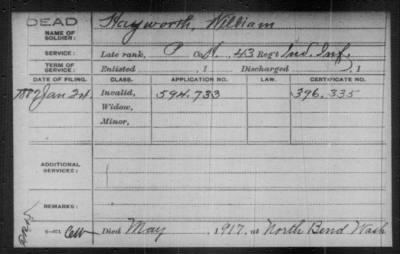 DEAD
NAME OF SOLDIER: Hayworth, William
SERVICE: Late rank, P Co. H, 43 Reg't Ind. Inf.
TERM OF SERVICE: Enlisted , 1 Discharged , 1
DATE OF FILING. CLASS. APPLICATION NO. LAW. CERTIFICATE NO.
1882 Jan 24. Invalid, 594.733 396.335
Widow,
Minor,
ADDITIONAL SERVICES:
REMARKS:
Died May 1917, at North Bend Wash